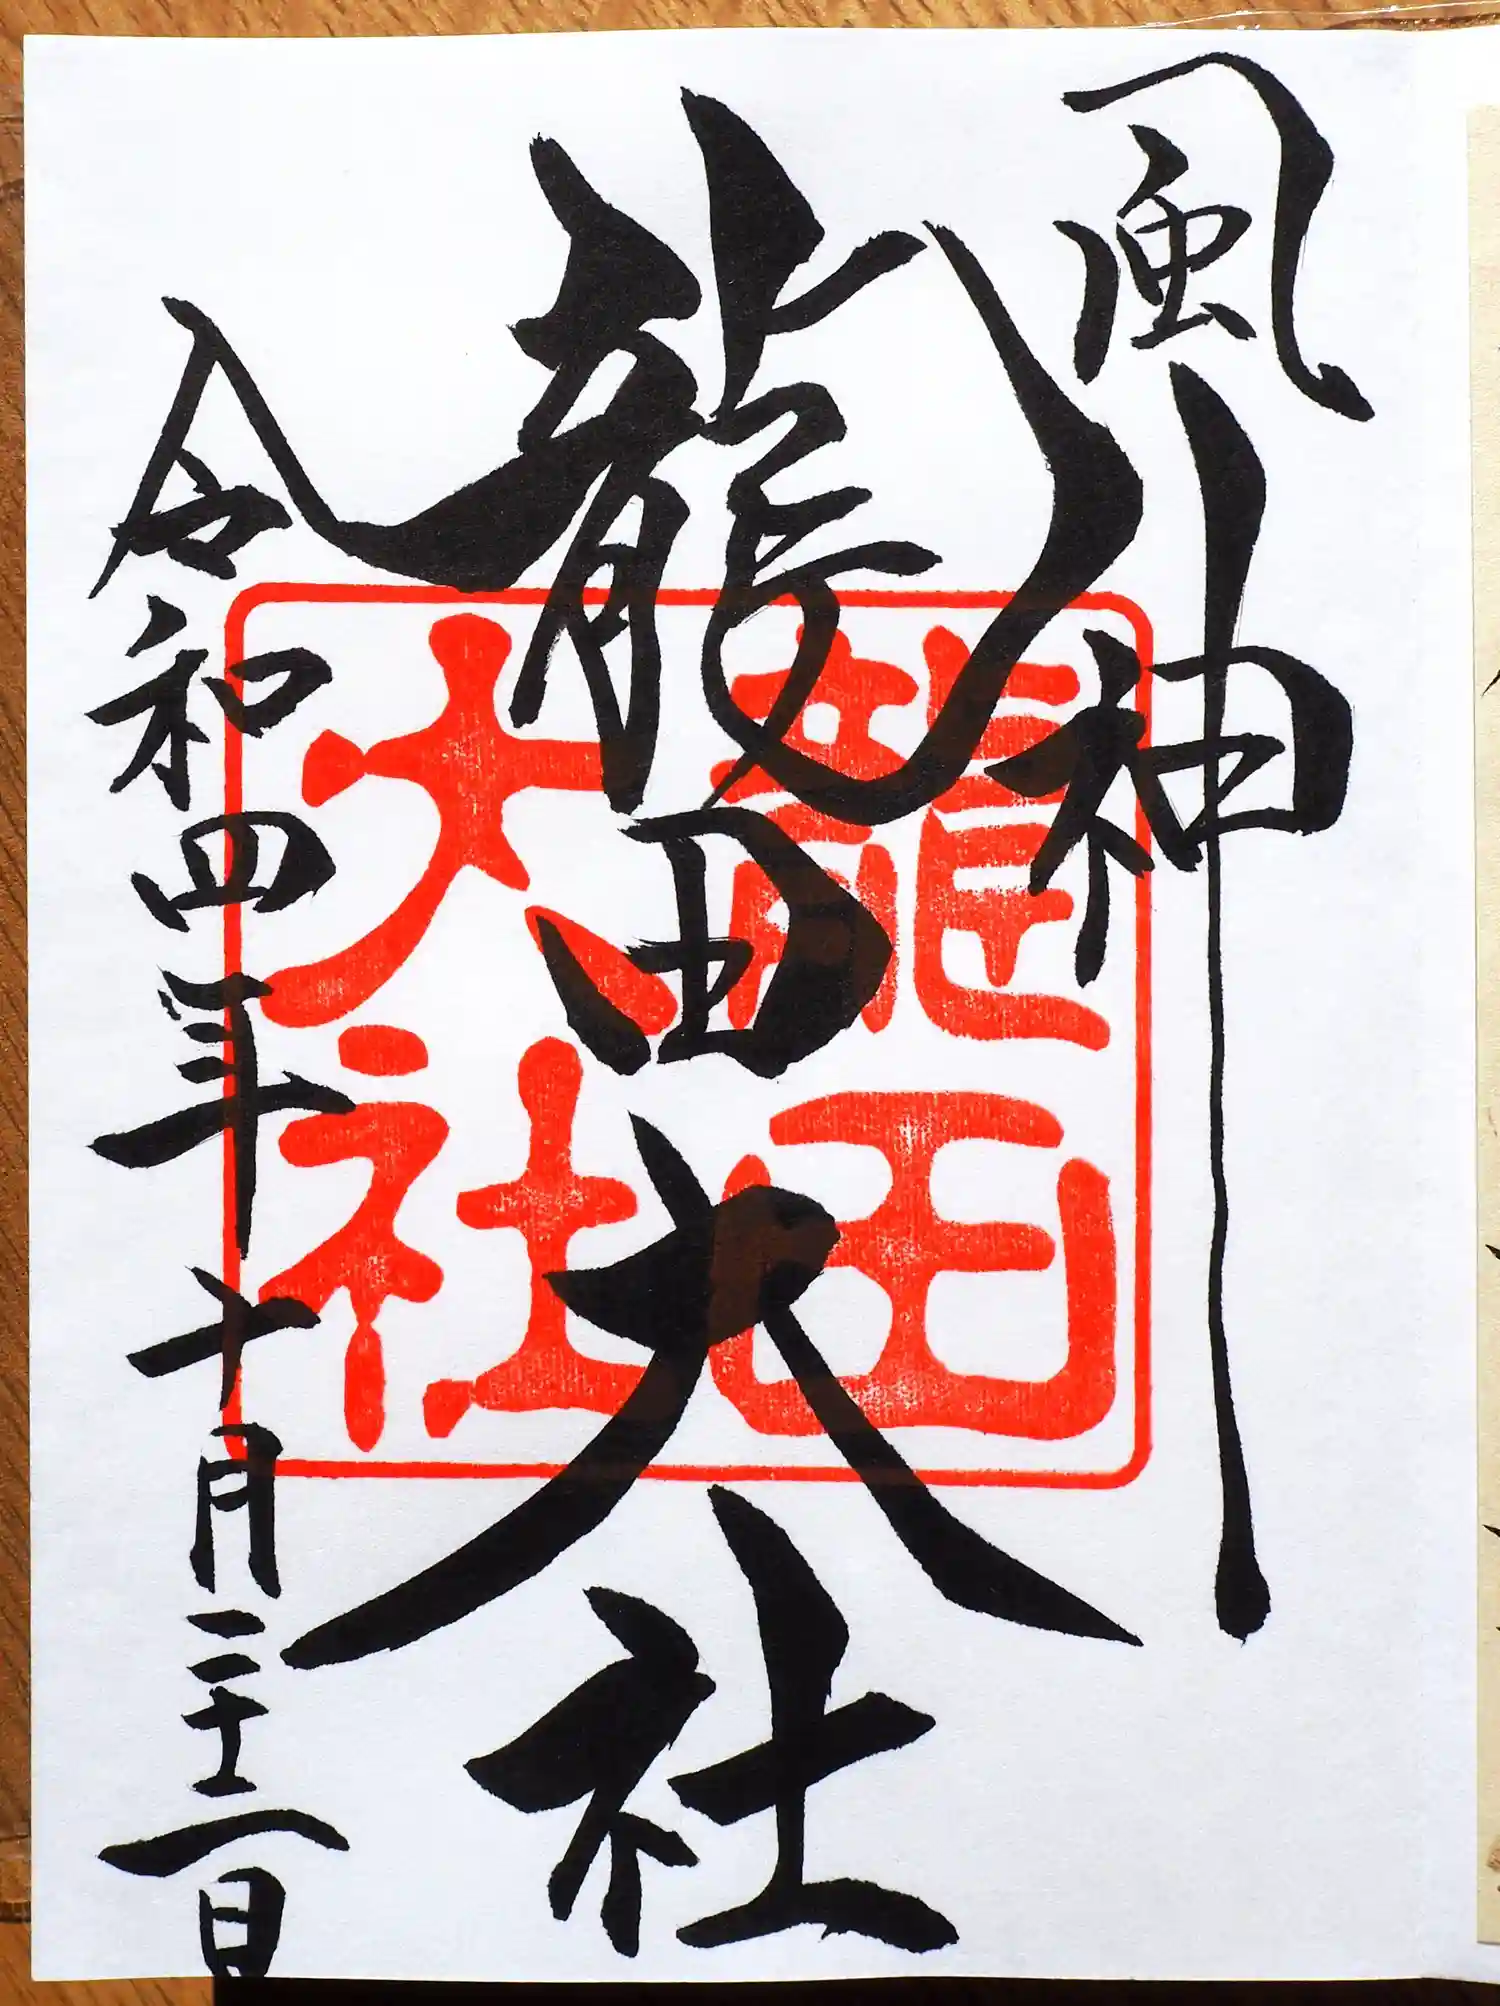 風神
龍田大社
令和四年十月二十二日
龍田
大社